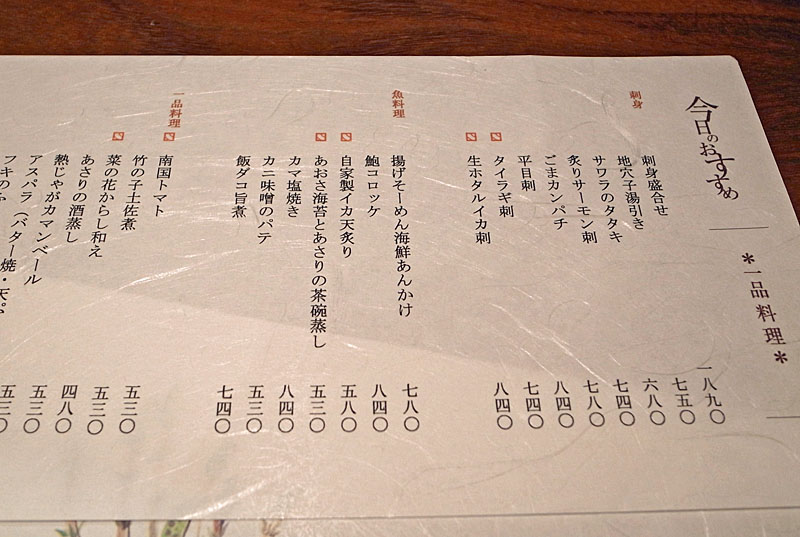 今日のおすすめ
＊一品料理＊
刺身
刺身盛合せ 一八九〇
地穴子湯引き 七五〇
サワラのタタキ 六八〇
炙りサーモン刺 七四〇
ごまカンパチ 七八〇
平目刺 八四〇
タイラギ刺 七四〇
生ホタルイカ刺 八四〇
魚料理
揚げそーめん海鮮あんかけ 七八〇
鮑コロッケ 八四〇
自家製イカ天炙り 五八〇
あおさ海苔とあさりの茶碗蒸し 五三〇
カマ塩焼き 八四〇
カニ味噌のパテ 五三〇
飯ダコ旨煮 七四〇
一品料理
南国トマト 五三〇
竹の子土佐煮 五三〇
菜の花からし和え 四八〇
あさりの酒蒸し 五三〇
熱じゃがカマンベール 五三〇
アスパラ（バター焼・天ぷ
フキの